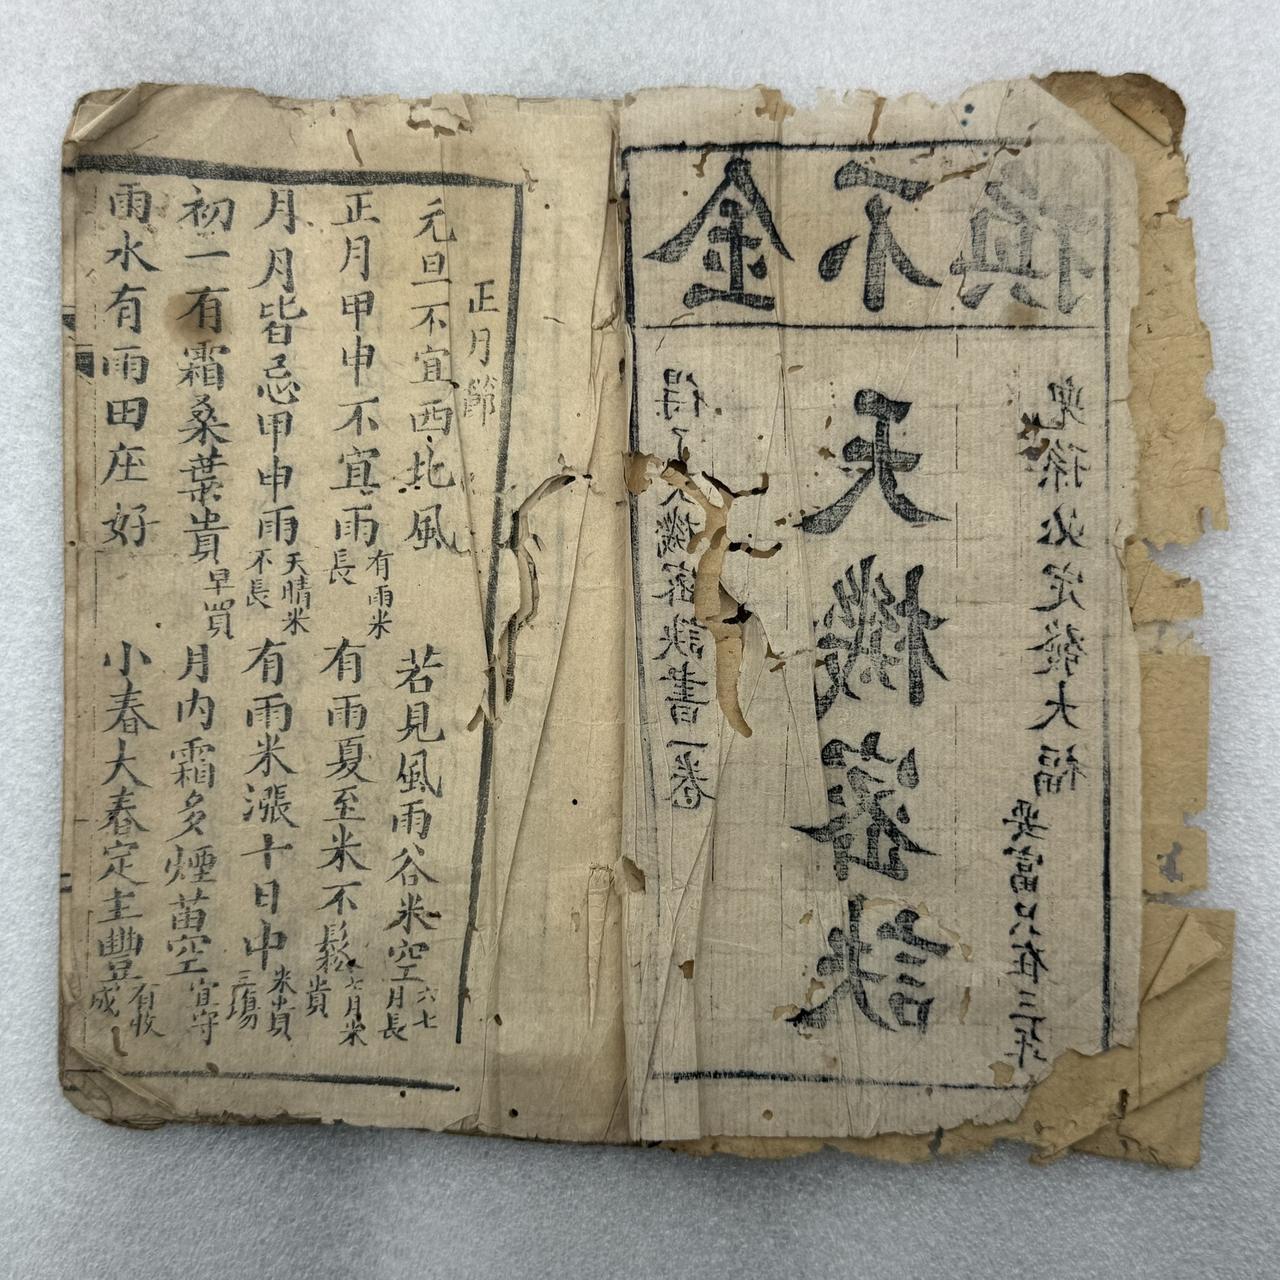 金不換
得了天機密訣書一卷
天機密訣
兒孫必定發大福
富只在三年
正月節
元旦不宜西北風 若見風雨谷米空 六七月長
正月甲申不宜雨 有雨米長 有雨夏至米不鬆 七月米貴
月月皆忌甲申雨 天晴米不長 有雨米漲十日中 米貴三塲
初一有霜桑葉貴 早買 月内霜多煙苗空 宜守
雨水有雨田庄好 小春大春定主豐 有收成